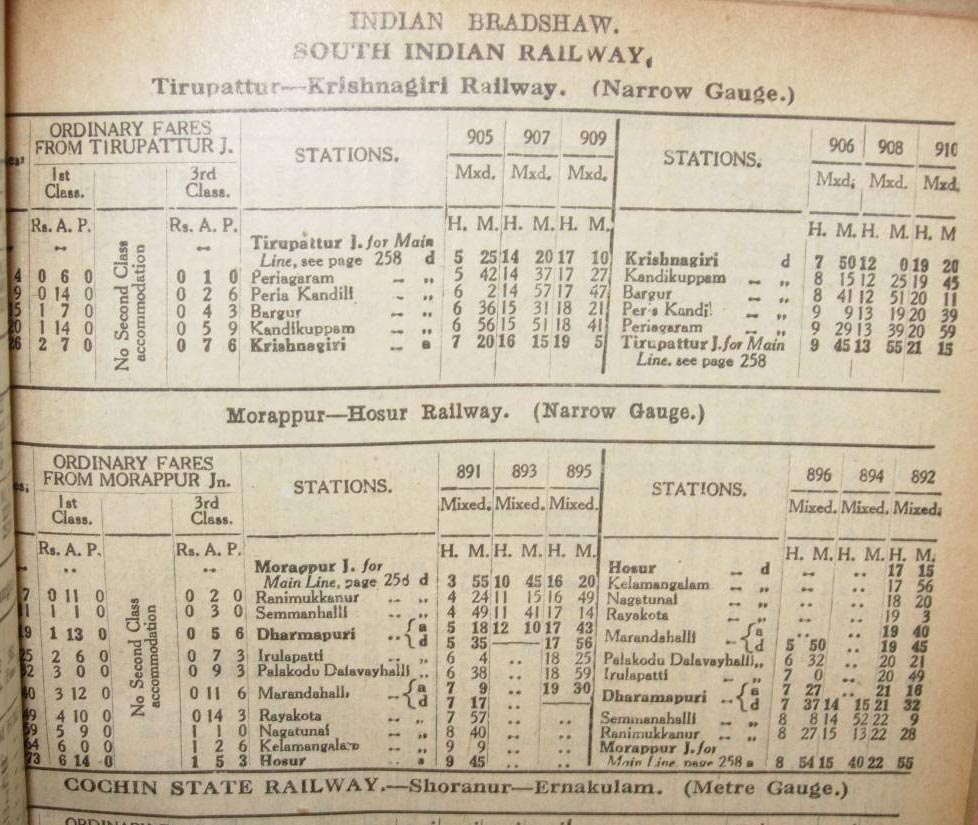 INDIAN BRADSHAW.
SOUTH INDIAN RAILWAY,
Tirupattur—Krishnagiri Railway. (Narrow Gauge.)
ORDINARY FARES FROM TIRUPATTUR J. STATIONS. 905 907 909 STATIONS. 906 908 910
1st Class. 3rd Class. Mxd. Mxd. Mxd. Mxd. Mxd. Mxd.
Rs. A. P. No Second Class accommodation Rs. A. P. H. M. H. M. H. M. H. M. H. M. H. M
Tirupattur J. for Main
Line, see page 258 d 5 25 14 20 17 10 Krishnagiri d 7 50 12 0 19 20
4 0 6 0 0 1 0 Periagaram „ 5 42 14 37 17 27 Kandikuppam „ 8 15 12 25 19 45
9 0 14 0 0 2 6 Peria Kandili „ 6 2 14 57 17 47 Bargur „ 8 41 12 51 20 11
15 1 7 0 0 4 3 Bargur „ 6 36 15 31 18 21 Per a Kandi! „ 9 9 13 19 20 39
20 1 14 0 0 5 9 Kandikuppam „ 6 56 15 51 18 41 Periagaram „ 9 29 13 39 20 59
26 2 7 0 0 7 6 Krishnagiri a 7 20 16 15 19 5 Tirupattur J. for Main 9 45 13 55 21 15
Line, see page 258
Morappur—Hosur Railway. (Narrow Gauge.)
ORDINARY FARES FROM MORAPPUR Jn. STATIONS. 891 893 895 STATIONS. 896 894 892
1st Class. 3rd Class. Mixed. Mixed. Mixed. Mixed. Mixed. Mixed.
Rs. A. P. No Second Class accommodation Rs. A. P. H. M. H. M. H. M. H. M. H. M. H. M.
Morappur J. for Hosur d .. .. 17 15
Main Line, page 25d d 3 55 10 45 16 20 Kelamangalam „ .. .. 17 56
7 0 11 0 0 2 0 Ranimukkanur .. „ 4 24 11 15 16 49 Nagatunai „ .. .. 18 20
1 1 1 0 0 3 0 Semmanhalli .. „ 4 49 11 41 17 14 Rayakota „ .. .. 19 3
19 1 13 0 0 5 6 Dharmapuri .. a 5 18 12 10 17 43 Marandahalli a .. .. 19 40
d 5 35 — 17 56 d 5 50 .. 19 45
25 2 6 0 0 7 3 Irulapatti „ 6 4 .. 18 25 Palakodu Dalavayhalli„ 6 32 .. 20 21
32 3 0 0 0 9 3 Palakodu Dalavayhalli „ 6 38 .. 18 59 Irulapatti „ 7 0 .. 20 49
40 3 12 0 0 11 6 Marandahalli a 7 9 .. 19 30 Dharamapuri a 7 27 .. 21 16
d 7 17 .. — d 7 37 14 15 21 32
49 4 10 0 0 14 3 Rayakota „ 7 57 .. .. Semmanahalli „ 8 8 14 52 22 9
59 5 9 0 1 1 0 Nagatunai „ 8 40 .. .. Ranimukkanur „ 8 27 15 13 22 28
64 6 0 0 1 2 6 Kelamangalam „ 9 9 .. .. Morappur J. for
73 6 14 0 1 5 3 Hosur a 9 45 .. .. Main Line page 258 a 8 54 15 40 22 55
COCHIN STATE RAILWAY.—Shoranur—Ernakulam. (Metre Gauge.)